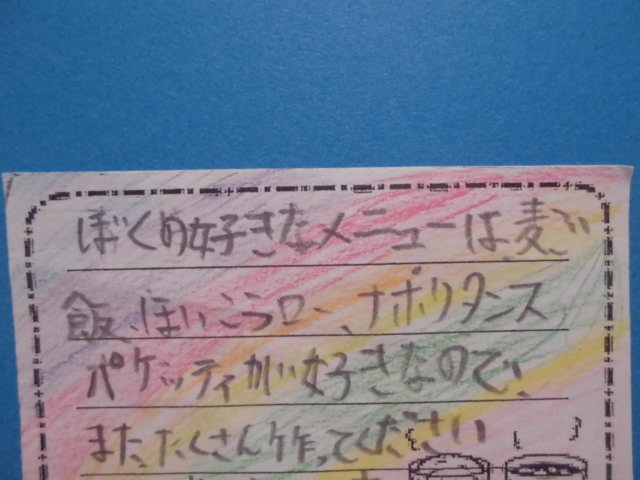 ぼくの好きなメニューは、麦ご
飯、ほいこうロー、ナポリタンス
パゲッティが好きなので、
また、たくさん作ってください